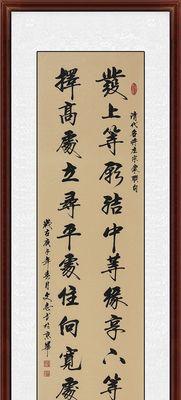 清代名将左宗棠联句
發上等願結中等緣享下等
擇高處立尋平處住向寬處
庚子年 月 於京華